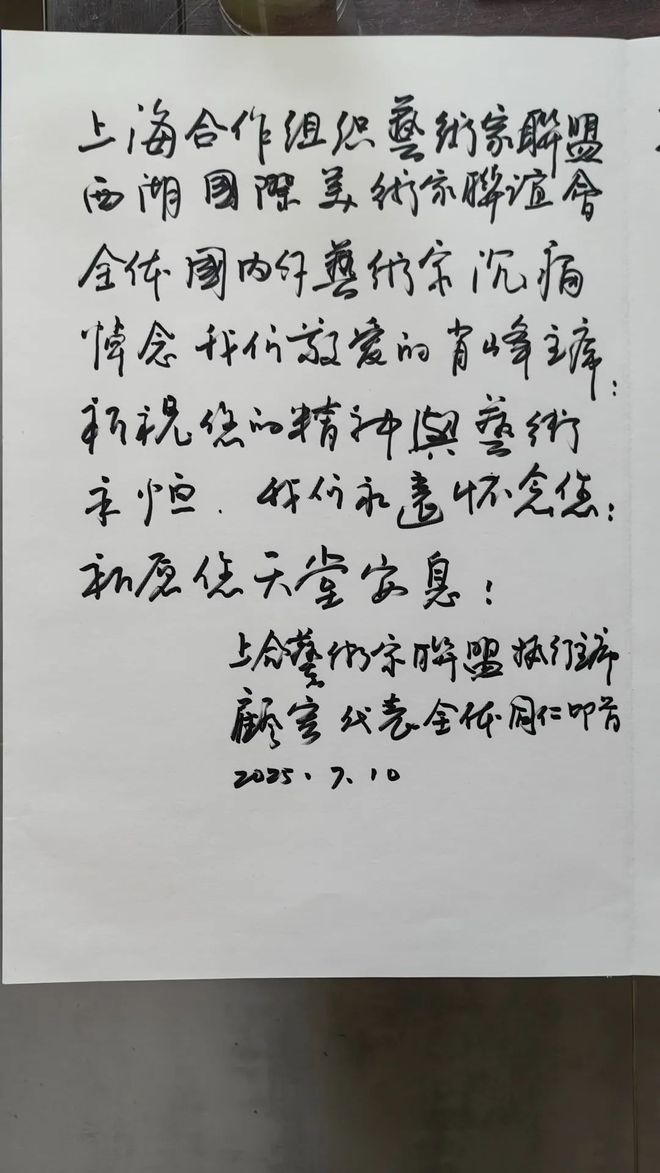 上海合作组织藝術家聯盟
西湖國際美術家聯誼會
全体國内外藝術家沉痛
悼念我们敬爱的肖峰主席!
祈祝您的精神與藝術
永恒.我们永遠怀念您!
祈愿您天堂安息!
上合藝術家聯盟执行主席
顧 代表全体同仁叩首
2025.7.10